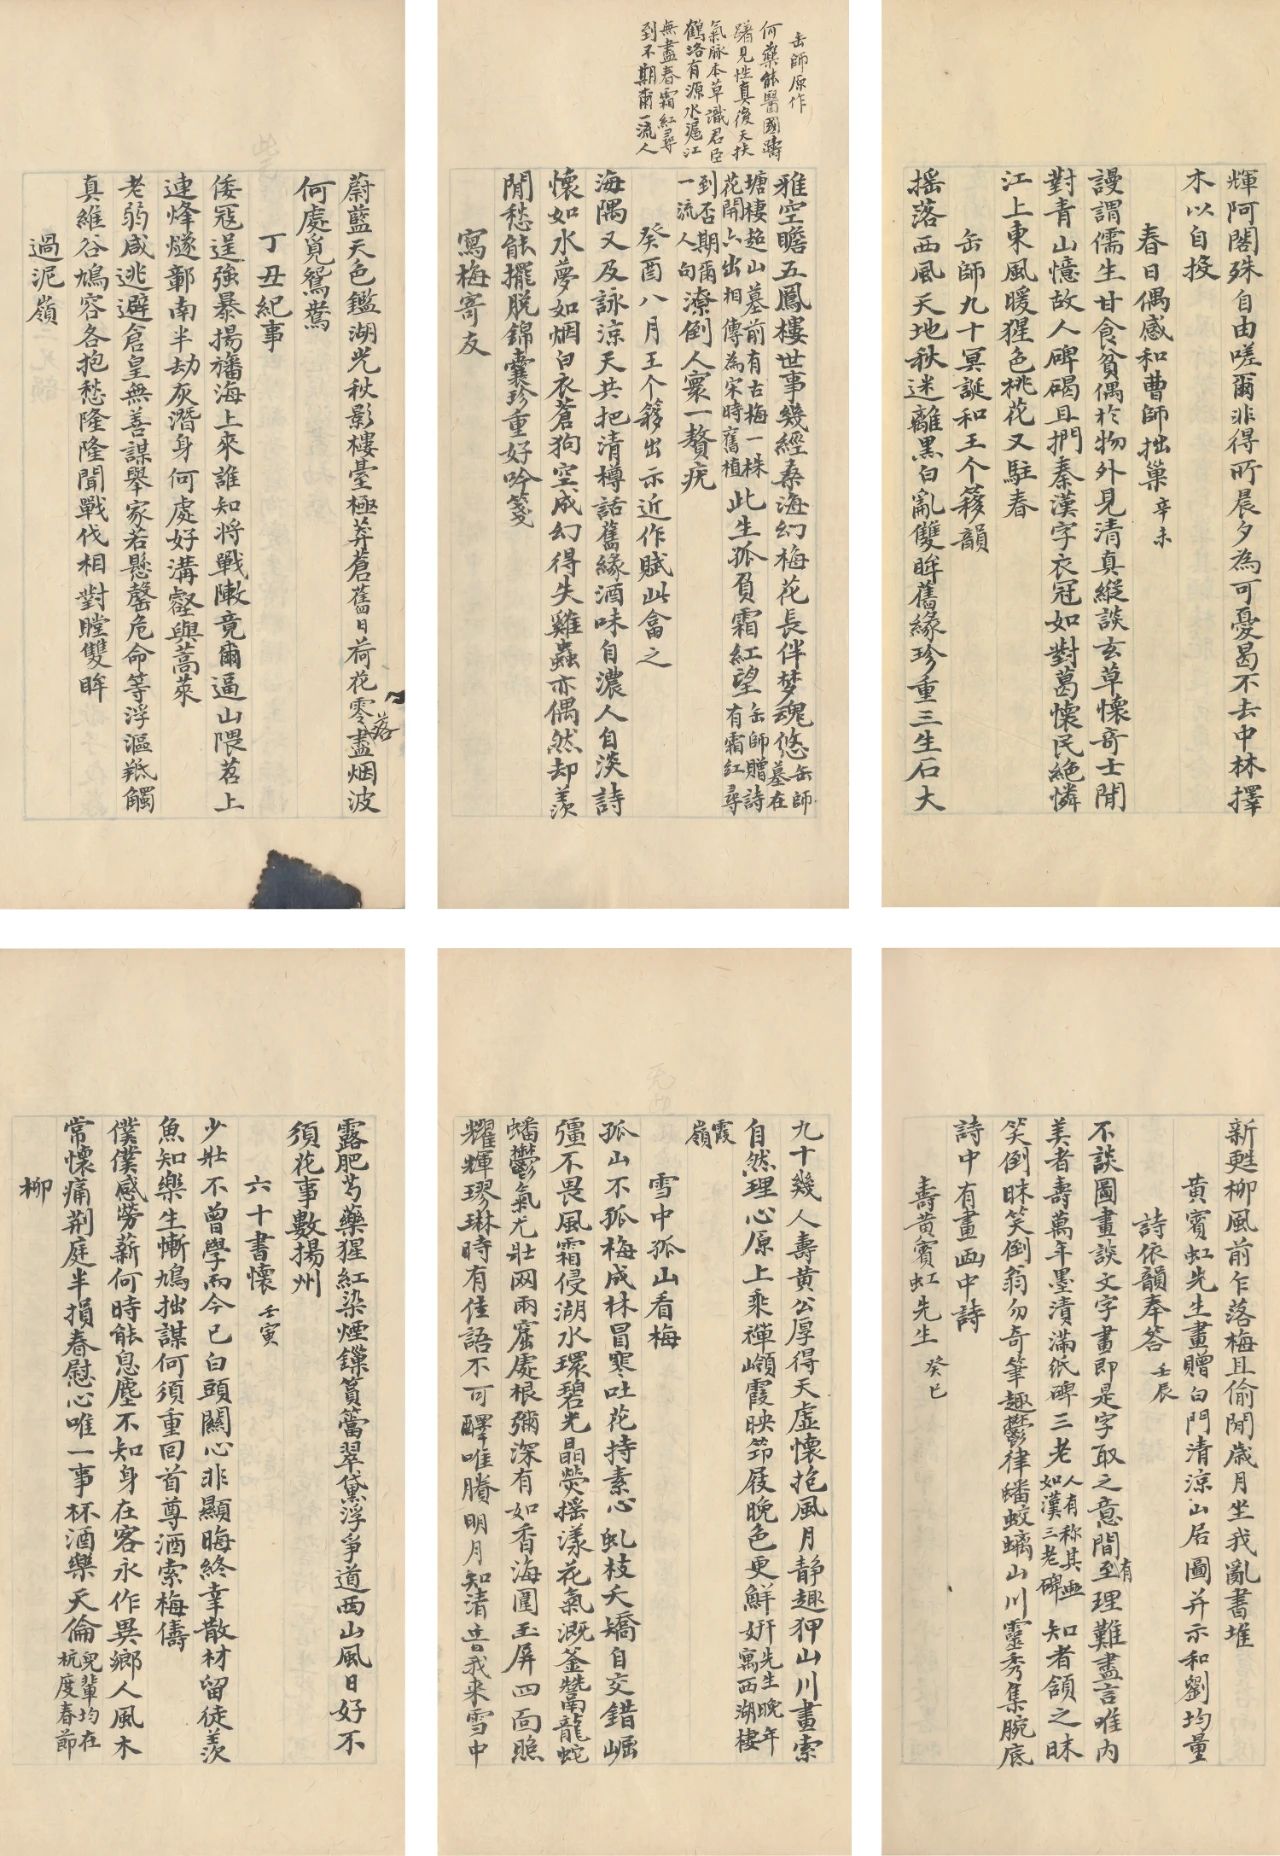 輝阿閣殊自由嗟爾非得所晨夕為可憂曷不去中林擇
木以自投
春日偶感和曹師拙巢 辛未
謾謂儒生甘食貧偶於物外見清真縱談玄草懷奇士閒
對青山憶故人碑碣且捫秦漢字衣冠如對葛懷民絶憐
江上東風暖猩色桃花又駐春
缶師九十冥誕和王个簃韻
搖落西風天地秋迷離黑白亂雙眸舊緣珍重三生石大
缶師原作
何藥能醫國躊
躇見性真後天扶
氣脉本草識君臣
鶴洛有源水滬江
無盡春霜紅尋
到不期爾一流人
雅空瞻五鳳樓世事幾經桑海幻梅花長伴梦魂悠缶師墓在
塘棲超山墓前有古梅一株花開六出相傳為宋時舊植此生孤負霜紅望缶師贈詩有霜紅尋
到否期爾一流人句潦倒人寰一贅疣
癸酉八月王个簃出示近作賦此畣之
海隅又及詠涼天共把清樽話舊緣酒味自濃人自淡詩
懷如水夢如烟白衣蒼狗空成幻得失雞蟲亦偶然却羨
閒愁能擺脱錦囊珍重好吟箋
寫梅寄友
蔚藍天色鑑湖光秋影樓臺極莽蒼舊日荷花零落盡烟波
何處覓鴛鴦
丁丑紀事
倭寇逞強暴揚旛海上來誰知将戰敶竟爾逼山隈苕上
連烽燧鄣南半劫灰潛身何處好溝壑與蒿萊
老弱咸逃避倉皇無善謀舉家若懸罄危命等浮漚羝觸
真維谷鳩容各抱愁隆隆聞戰伐相對瞠雙眸
過泥嶺
新甦柳風前乍落梅且偷閒歲月坐我亂書堆
黃賓虹先生畫贈白門清涼山居圖并示和劉均量
詩依韻奉答 壬辰
不談圖畫談文字畫即是字取之意間有至理難盡言唯內
美者壽萬年墨漬滿紙碑三老人有稱其画如漢三老碑知者頷之昧
笑倒昧笑倒翁勿奇筆趣鬱律蟠蛟螭山川靈秀集腕底
詩中有畫画中詩
壽黃賓虹先生 癸巳
九十幾人壽黃公厚得天虛懷抱風月靜趣狎山川畫索
自然理心原上乘禪嶺霞映笻屐晚色更鮮妍先生晚年寓西湖棲
霞嶺
雪中孤山看梅
孤山不孤梅成林冒寒吐花持素心虬枝夭矯自交錯崛
彊不畏風霜侵湖水環碧光晶熒摇漾花氣溉釜鬵龍蛇
蟠鬱氣尤壯网兩窟處根彌深有如香海圍玉屏四面照
耀輝璆琳時有佳語不可醳唯賸明月知清音我来雪中
露肥芍藥猩紅染煙鏁篔簹翠黛浮爭道西山風日好不
須花事數揚州
六十書懷 壬寅
少壯不曾學而今已白頭關心非顯晦終幸散材留徒羨
魚知樂生慚鳩拙謀何須重回首尊酒索梅儔
僕僕感勞薪何時能息塵不知身在客永作異鄉人風木
常懷痛荆庭半損春慰心唯一事杯酒樂天倫兒輩均在杭度春節
柳